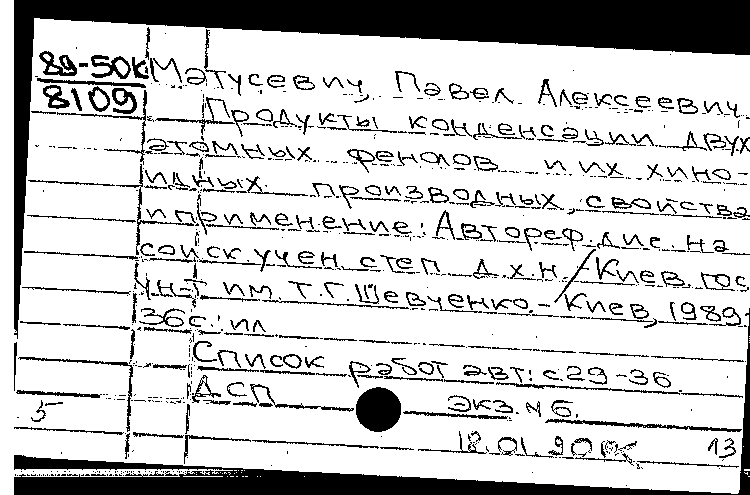 89-50К Матусевич, Павел Алексеевич.
8109
Продукты конденсации двух
атомных фенолов и их хино-
идных производных, свойства
и применение: Автореф. дис. на
соиск. учен. степ. д.х.н. / Киев. гос.
ун-т им. Т.Г. Шевченко. - Киев, 1989.-
36с.: ил
Список работ авт.: с.29-36.
ДСП экз. № 6.
5
18.01.90 13